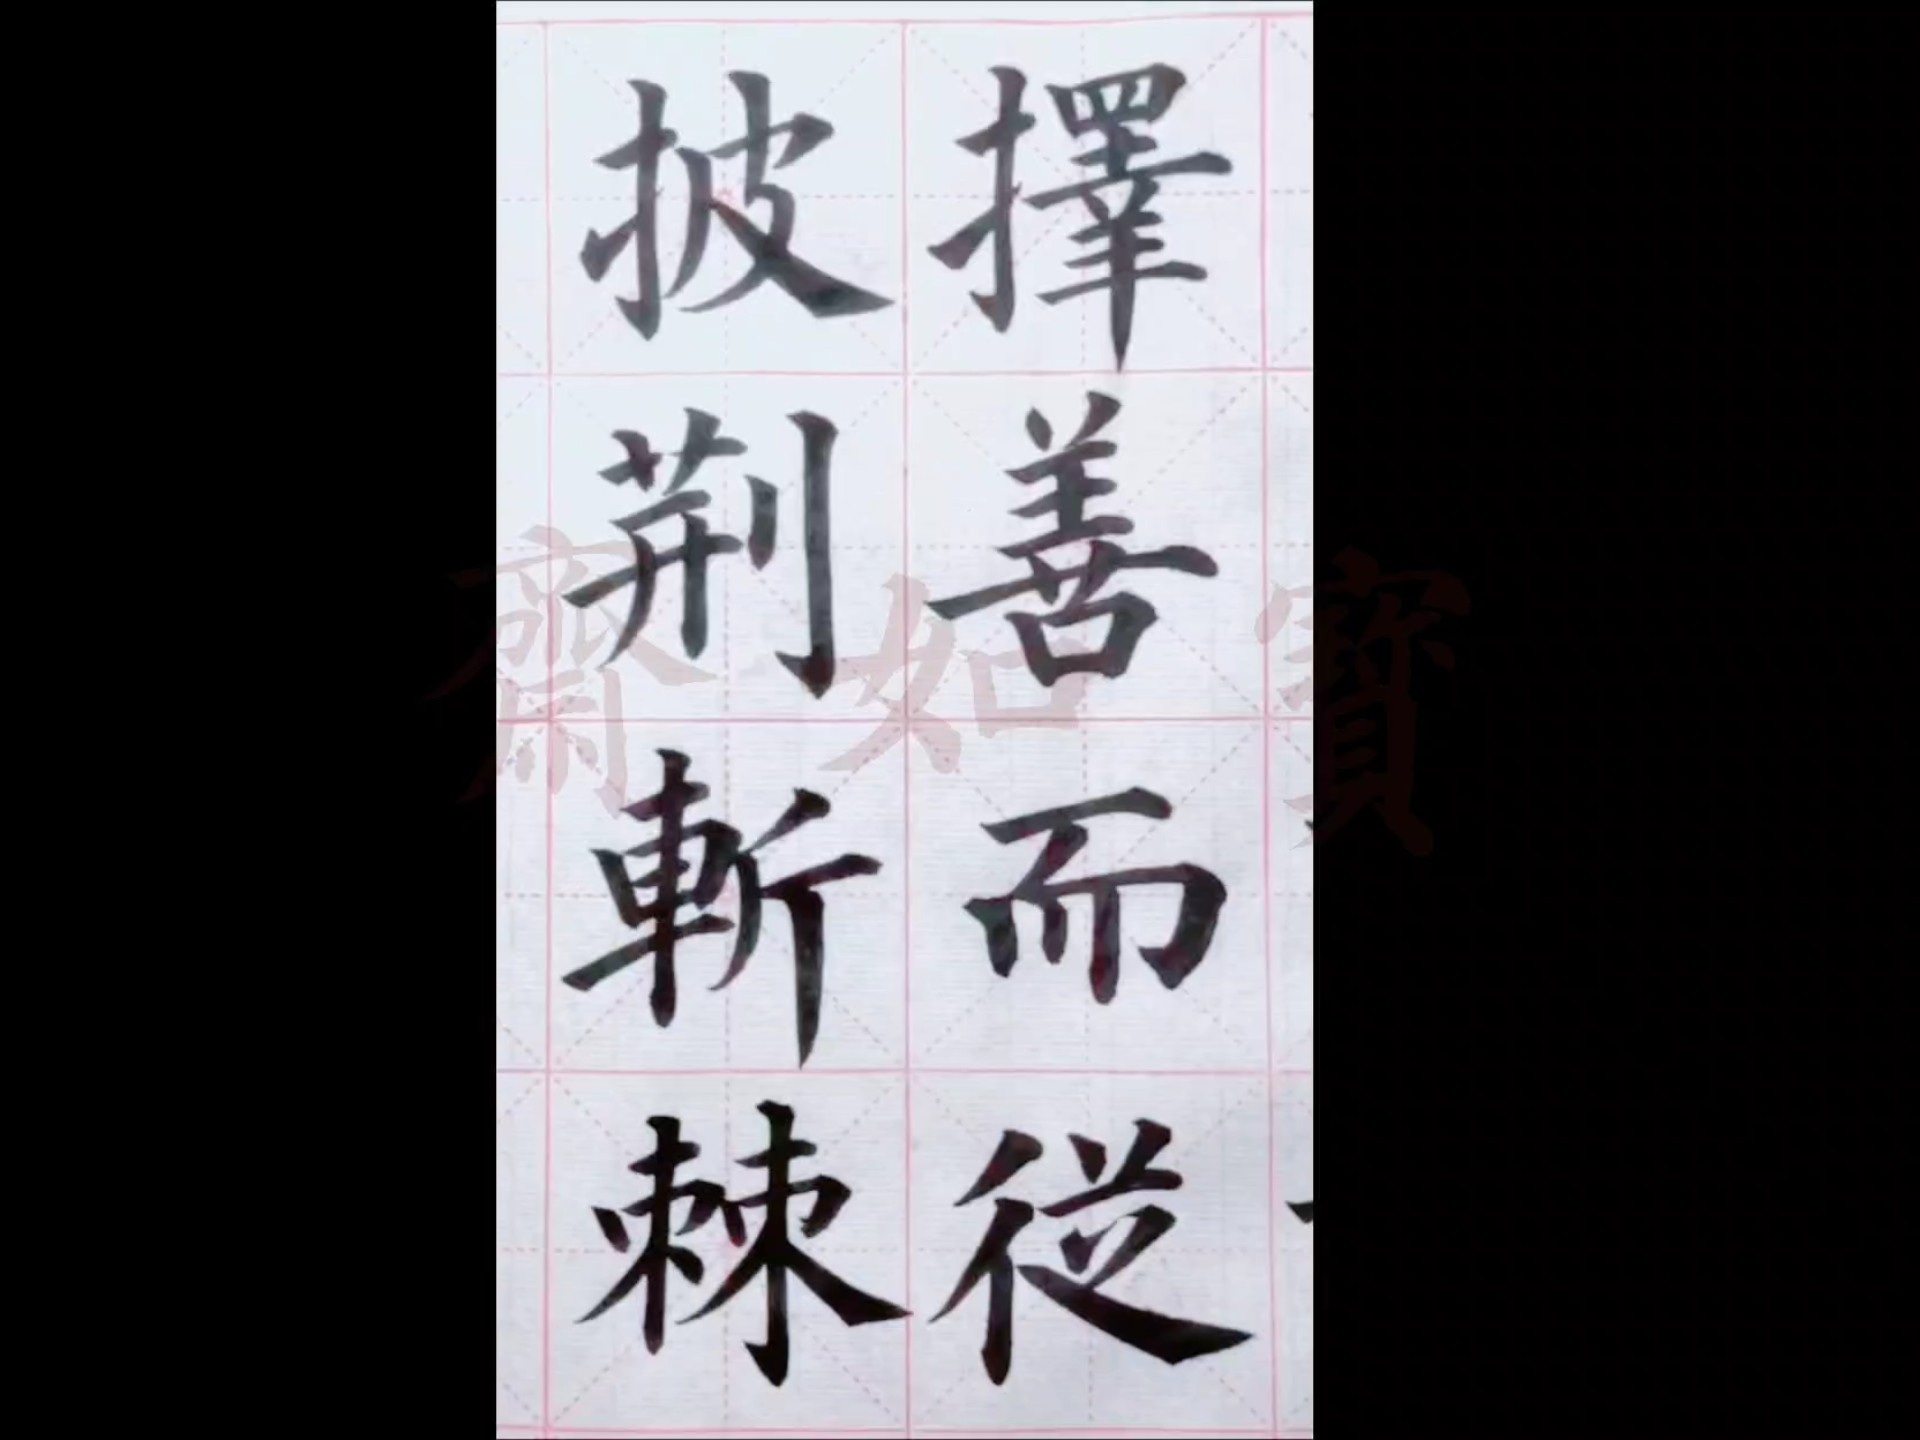 擇善而從
披荆斬棘
寶如齋